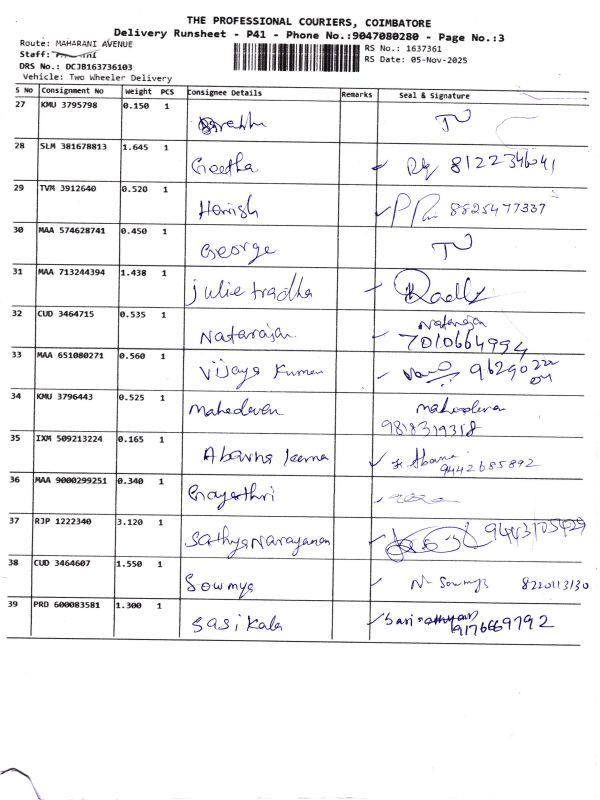 THE PROFESSIONAL COURIERS, COIMBATORE
Delivery Runsheet - P41 - Phone No.:9047080280 - Page No.:3
Route: MAHARANI AVENUE
RS No.: 1637361
Staff:
RS Date: 05-Nov-2025
DRS No.: DCJB163736103
Vehicle: Two Wheeler Delivery
S No Consignment No Weight PCS Consignee Details Remarks Seal & Signature
27 KMU 3795798 0.150 1
28 SLM 381678813 1.645 1 Geetha
29 TVM 3912640 0.520 1 Harish 8825477337
30 MAA 574628741 0.450 1 George
31 MAA 713244394 1.438 1 julie tradha
32 CUD 3464715 0.535 1 Natarajan Natarajan
7010664994
33 MAA 651080271 0.560 1 Vijaya Kumar
34 KMU 3796443 0.525 1 Mahadevan mahadevan
9818319318
35 IXM 509213224 0.165 1 Abarna
9442685892
36 MAA 9000299251 0.340 1 Gayathri
37 RJP 1222340 3.120 1 Sathya Narayanan
38 CUD 3464607 1.550 1 Sowmya N. Sowmya 8220113130
39 PRD 600083581 1.300 1 Sasikala
9176669792